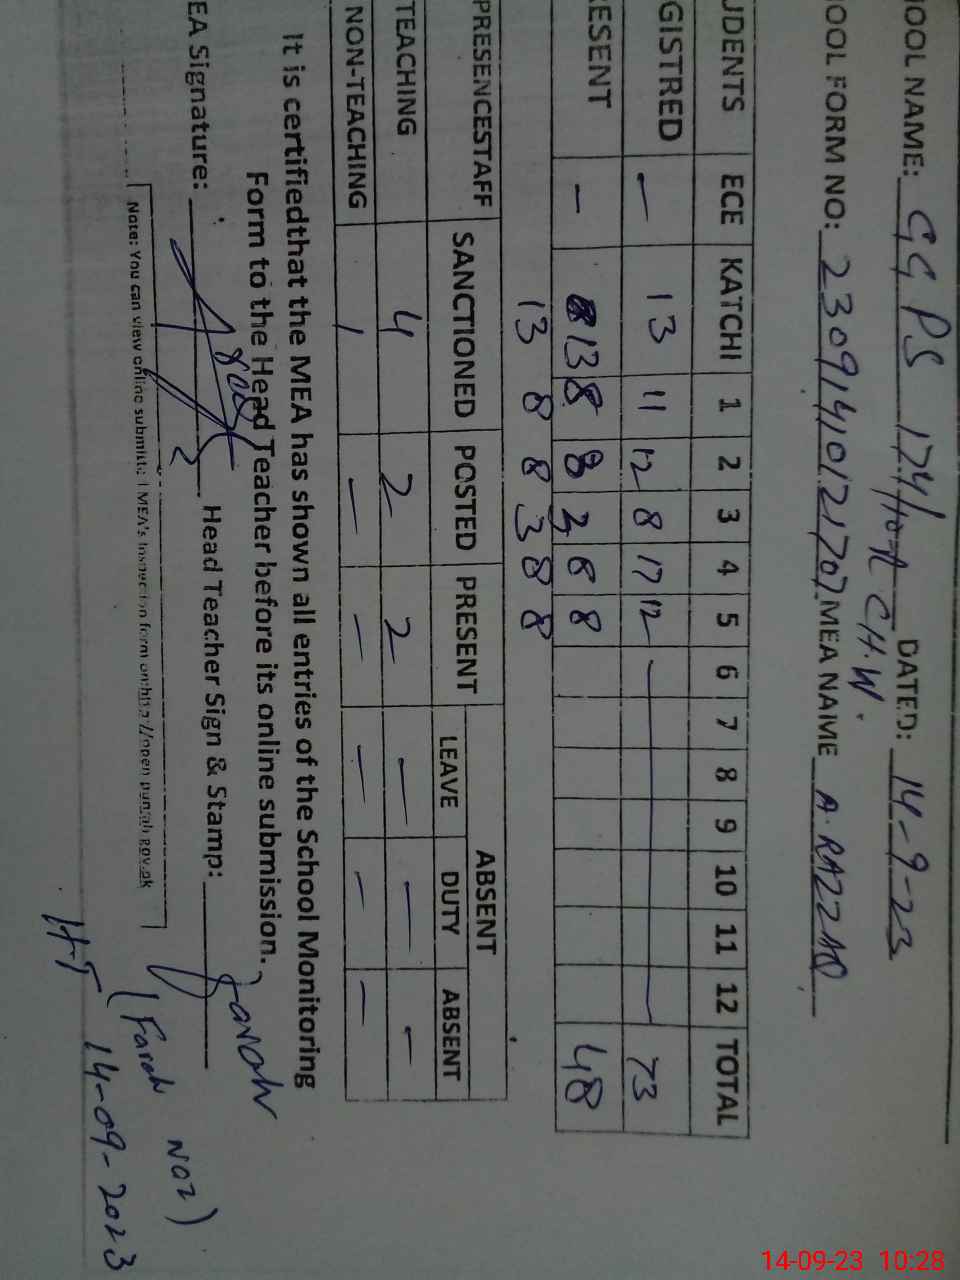 OOL NAME: GGPS 174/10-R CH.W. DATED: 14-9-23
OOL FORM NO: 23091410121707 MEA NAME A.RAZZAQ
UDENTS ECE KATCHI 1 2 3 4 5 6 7 8 9 10 11 12 TOTAL
GISTRED — 13 11 12 8 17 12 — 73
RESENT — 13 8 8 3 8 8 48
13 8 8 3 8 8
PRESENCESTAFF SANCTIONED POSTED PRESENT ABSENT
LEAVE DUTY ABSENT
TEACHING 4 2 2 — — —
NON-TEACHING 1 — — — — —
It is certifiedthat the MEA has shown all entries of the School Monitoring
Form to the Head Teacher before its online submission.
EA Signature: Head Teacher Sign & Stamp: Farah
(Farah Naz)
Note: You can view online submitted MEA's Inspection form on:http://open.punjab.gov.pk
HT 14-09-2023
14-09-23 10:28